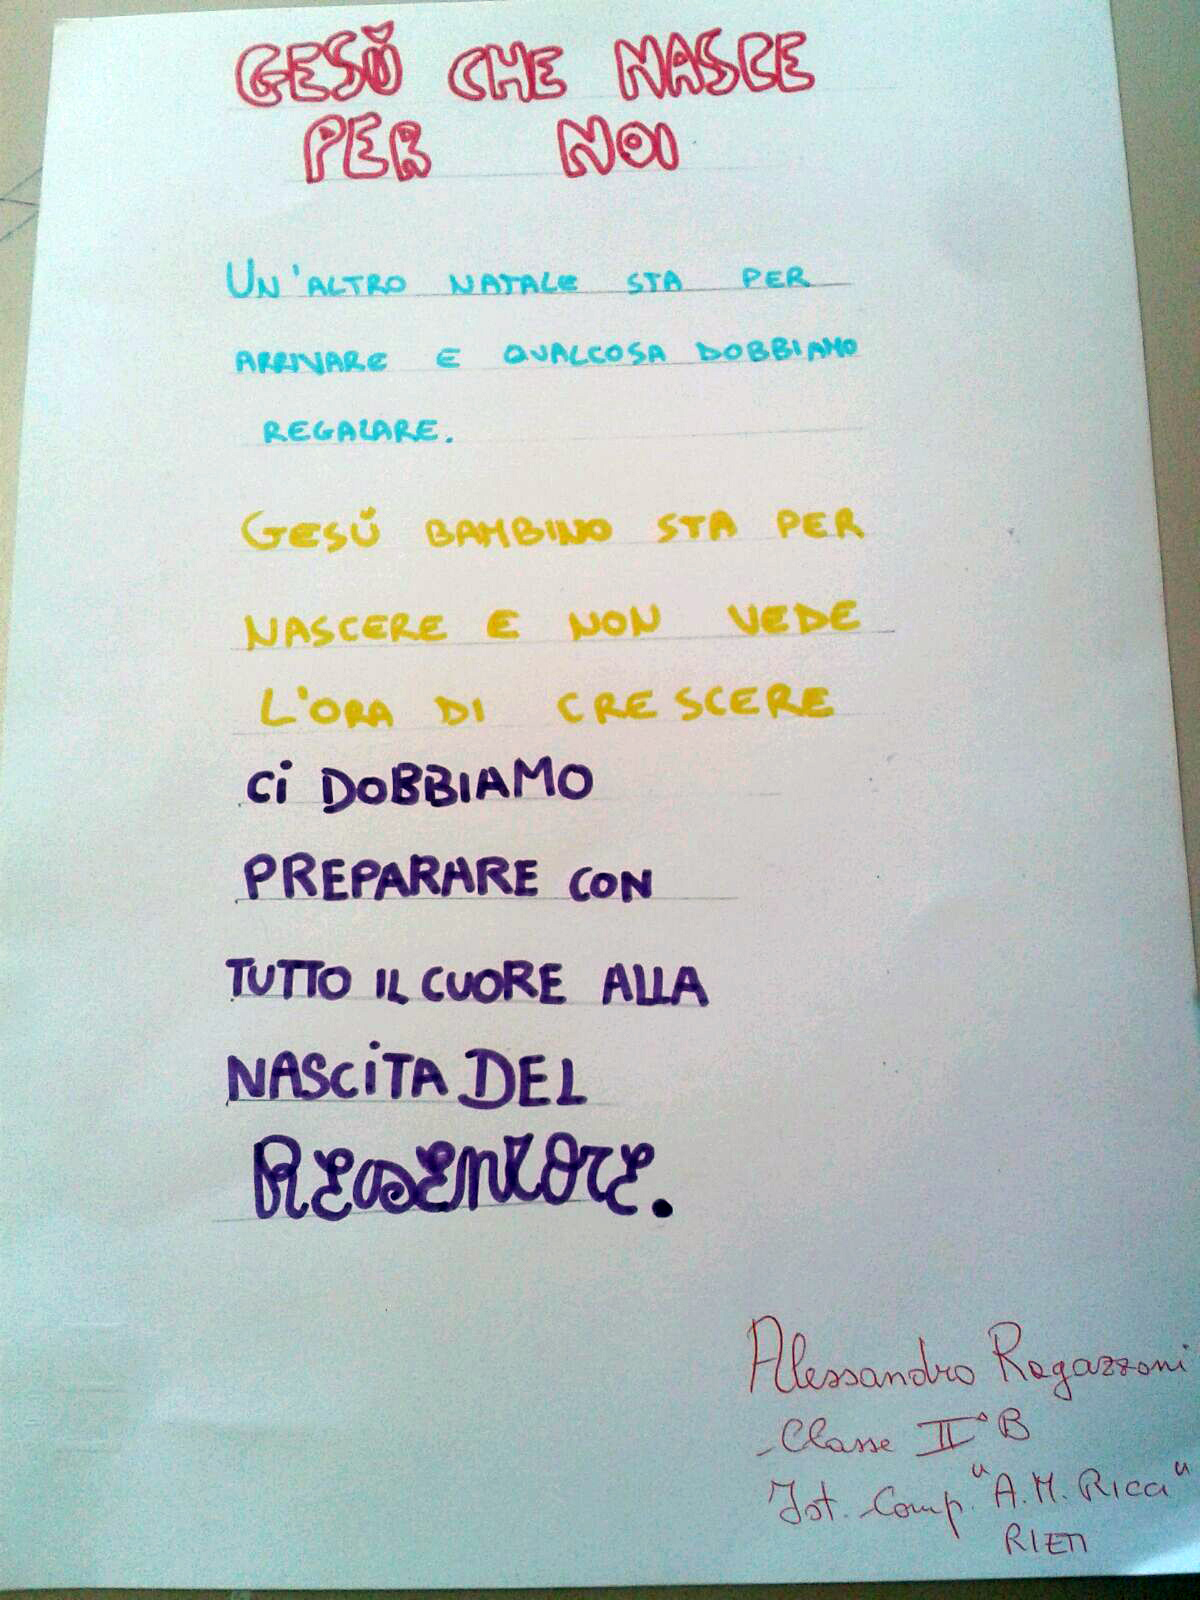 GESÙ CHE NASCE
PER NOI
UN'ALTRO NATALE STA PER
ARRIVARE E QUALCOSA DOBBIAMO
REGALARE.
GESÙ BAMBINO STA PER
NASCERE E NON VEDE
L'ORA DI CRESCERE
Ci DOBBIAMO
PREPARARE CON
TUTTO IL CUORE ALLA
NASCiTA DEL
REDENTORE.
Alessandro Ragazzoni
Classe II° B
Ist. Comp. "A.M. Ricci"
RIETI